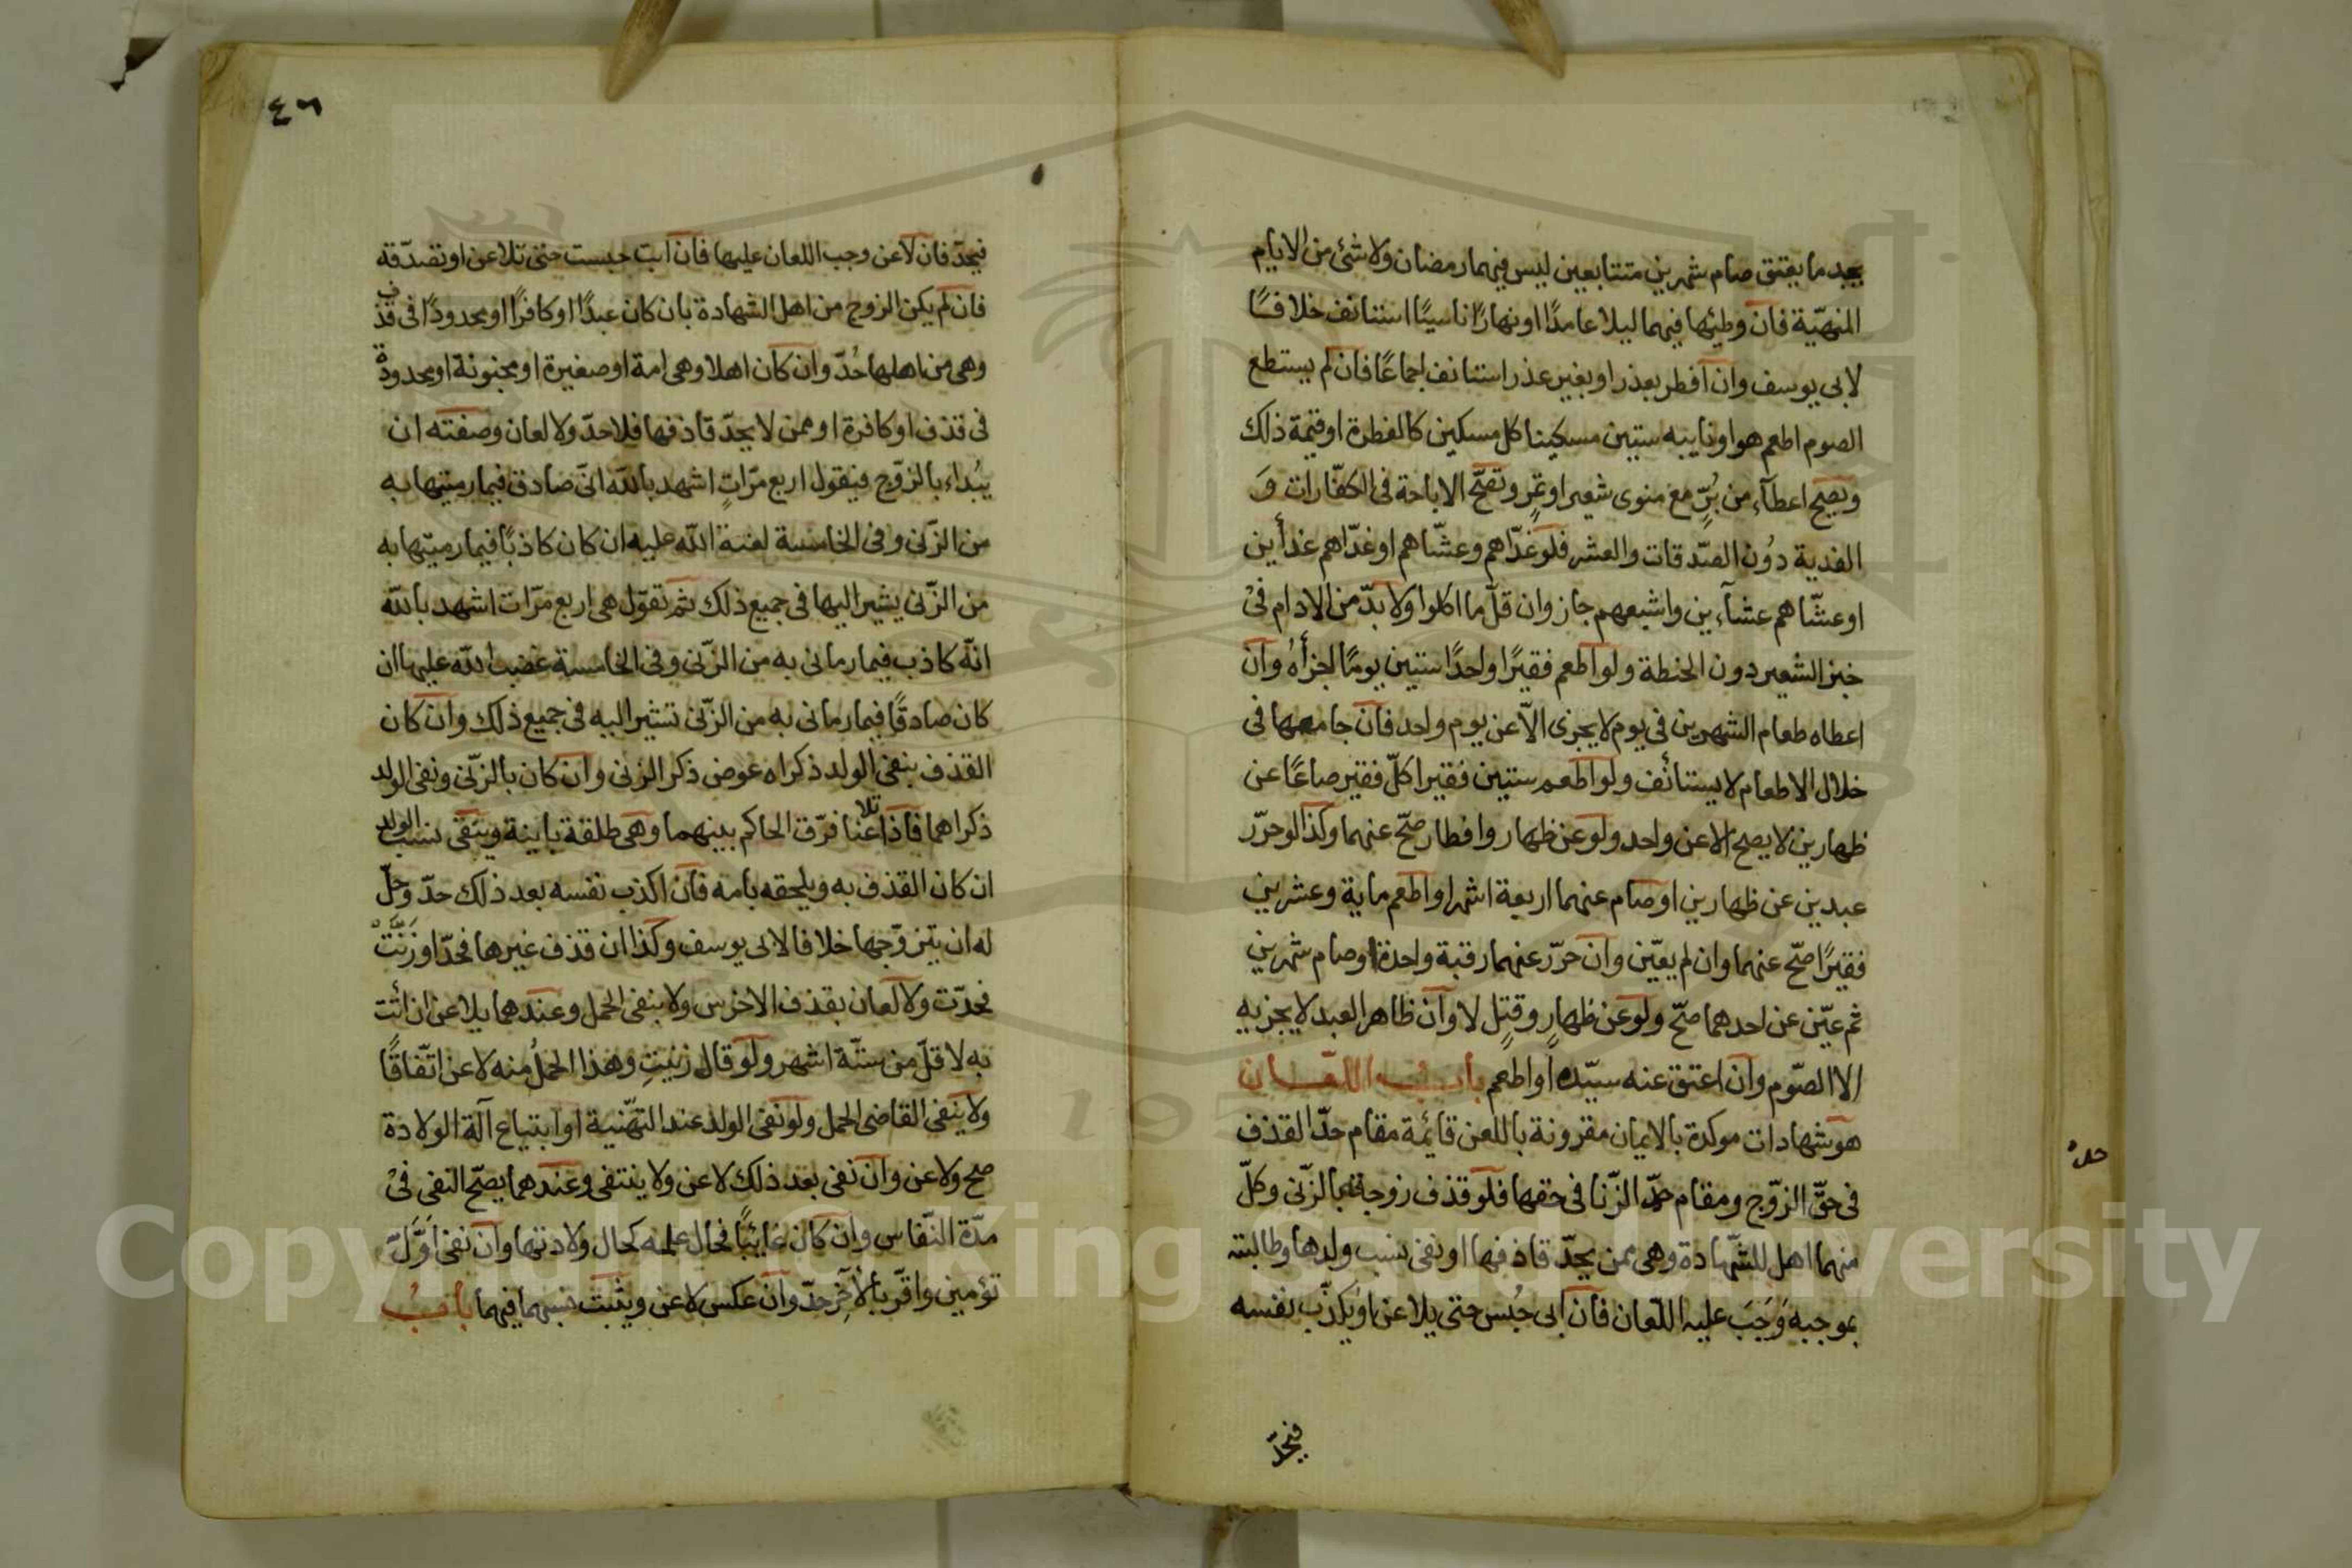 يجد ما يعتق صام شهرين متتابعين ليس فيهما رمضان ولا شئ من الايام
المنهيّة فان وطئها فيهما ليلا عامدًا او نهارًا ناسيًا استانف خلافًا
لابى يوسف وان افطر بعذر او بغير عذر استانف اجماعًا فان لم يستطع
الصوم اطعم هو او نايبه ستين مسكينا كل مسكين كالفطرة او قيمة ذلك
ويصح اعطاء من بُرٍّ مع منوى شعير او تمر وتصحّ الاباحة فى الكفّارات وَ
الفدية دوُن الصّدقات والعشر فلو غدّاهم وعشّاهم او غدّاهم غدأين
او عشّاهم عشآءين واشبعهم جاز وان قلّ ما اكلوا ولا بدّ من الادام فى
خبز الشعير دون الحنطة ولو اطعم فقيرًا واحدًا ستين يومًا اجزأهُ وان
اعطاه طعام الشهرين فى يوم لا يجزى الاّ عن يوم واحد فان جامعها فى
خلال الاطعام لا يستأنف ولو اطعم ستين فقيرا كلّ فقير صاعًا عن
ظهارين لا يصح الا عن واحد ولو عن ظهار وافطار صحّ عنهما وكذا لو حرّر
عبدين عن ظهارين او صام عنهما اربعة اشهر او اطعم ماية وعشرين
فقيرًا صحّ عنهما وان لم يعيّن وان حرّر عنهما رقبة واحدة او صام شهرين
ثم عيّن عن احدهما صحّ ولو عن ظهارٍ وقتلٍ لا وان ظاهر العبد لا يجزيه
الا الصّوم وان اعتق عنه سيّده او اطعم باب اللعان
هو شهادات موكدة بالايمان مقرونة باللعن قائمة مقام حدّ القذف
فى حقّ الزوّج ومقام حدّ الزّنا فى حقها فلو قذف زوجته بالزّنى وكلّ
منهما اهل للشّهادة وهى ممن يحدّ قاذفها او نفى نسب ولدها وطالبته
بموجبه وَجَبَ عليه اللّعان فان ابى حُبُس حتى يلاعن او يكذّب نفسه
فيحدّ
فيحدّ فان لاعن وجب اللعان عليها فان ابت حبست حتى تلاعن او تصدّقه
فان لم يكن الزوج من اهل الشهادة بان كان عبدًا او كافرًا او محدودًا فى قذف
وهى من اهلها حُدّ وان كان اهلا وهى امة او صغيرة او مجنونة او محدودة
فى قذف او كافرة او ممن لا يحدّ قاذفها فلا حدّ ولا لعان وصفته ان
يبُداء بالزوّج فيقول اربع مرّاتٍ اشهد بالله انىّ صادق فيما رميتها به
من الزّنى وفى الخامسة لعنة الله عليه ان كان كاذبًا فيما رميتها به
من الزّنى يشير اليها فى جميع ذلك ثم تقوّل هى اربع مرّات اشهد بالله
انّه كاذب فيما رمانى به من الزّنى وفى الخامسة غضب الله عليها ان
كان صادقًا فيما رمانى به من الزّنى تشير اليه فى جميع ذلك وان كان
القذف بنفى الولد ذكراه عوض ذكر الزنى وان كان بالزّنى ونفى الولد
ذكراهما فاذا تلاعنا فرّق الحاكم بينهما وهى طلقة باينة وينفى نسب الولد
ان كان القذف به ويلحقه بامه فان اكذب نفسه بعد ذلك حدّ وحلّ
له ان يتزوّجها خلافا لابى يوسف وكذا ان قذف غيرها فحدّ او زَنَتْ
فحدّت ولا لعان بقذف الاخرس ولا بنفى الحمل وعندهما يلاعن ان اتت
به لاقلّ من ستّة اشهر ولو قال زنيتِ وهذا الحملُ منه لاعن اتّفاقًا
ولا ينفى القاضى الحمل ولو نفى الولد عند التّهنية او ابتياع آلة الولادة
صح ولاعن وان نفى بعد ذلك لاعن ولا ينتفى وعندهما يصحّ النفى فىْ
مدّة النّفاس وان كان غائبًا فحال علمه كحال ولادتها وان نفى اوّلَ
تؤمين واقرّ بألآخِر حدّ وان عكس لاعن ويثبت نسبهما فيهما باب
٤٦
Copyright © King Saud University
195